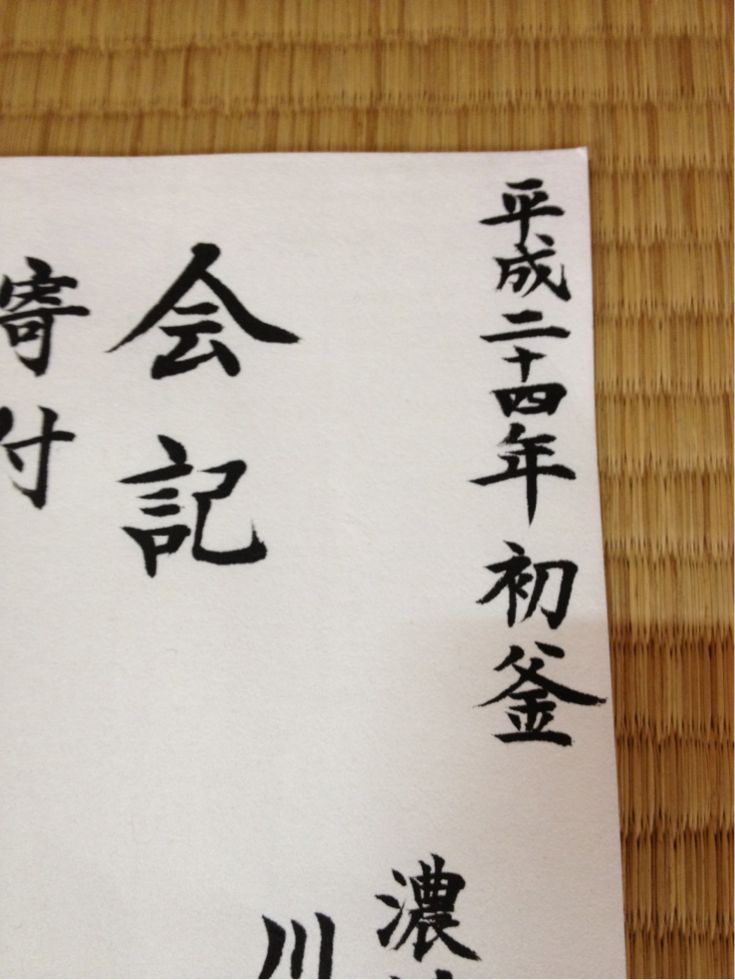 平成二十四年 初釜
濃
川
会記
寄付